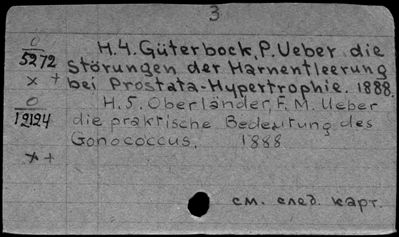 3
O
5272
× +
H.4. Güterbock, P. Ueber die
Störungen der Harnentleerung
bei Prostata-Hypertrophie. 1888.
O
12124
×+
H.5. Oberländer, F. M. Ueber
die praktische Bedeutung des
Gonococcus. 1888
см. след. карт.